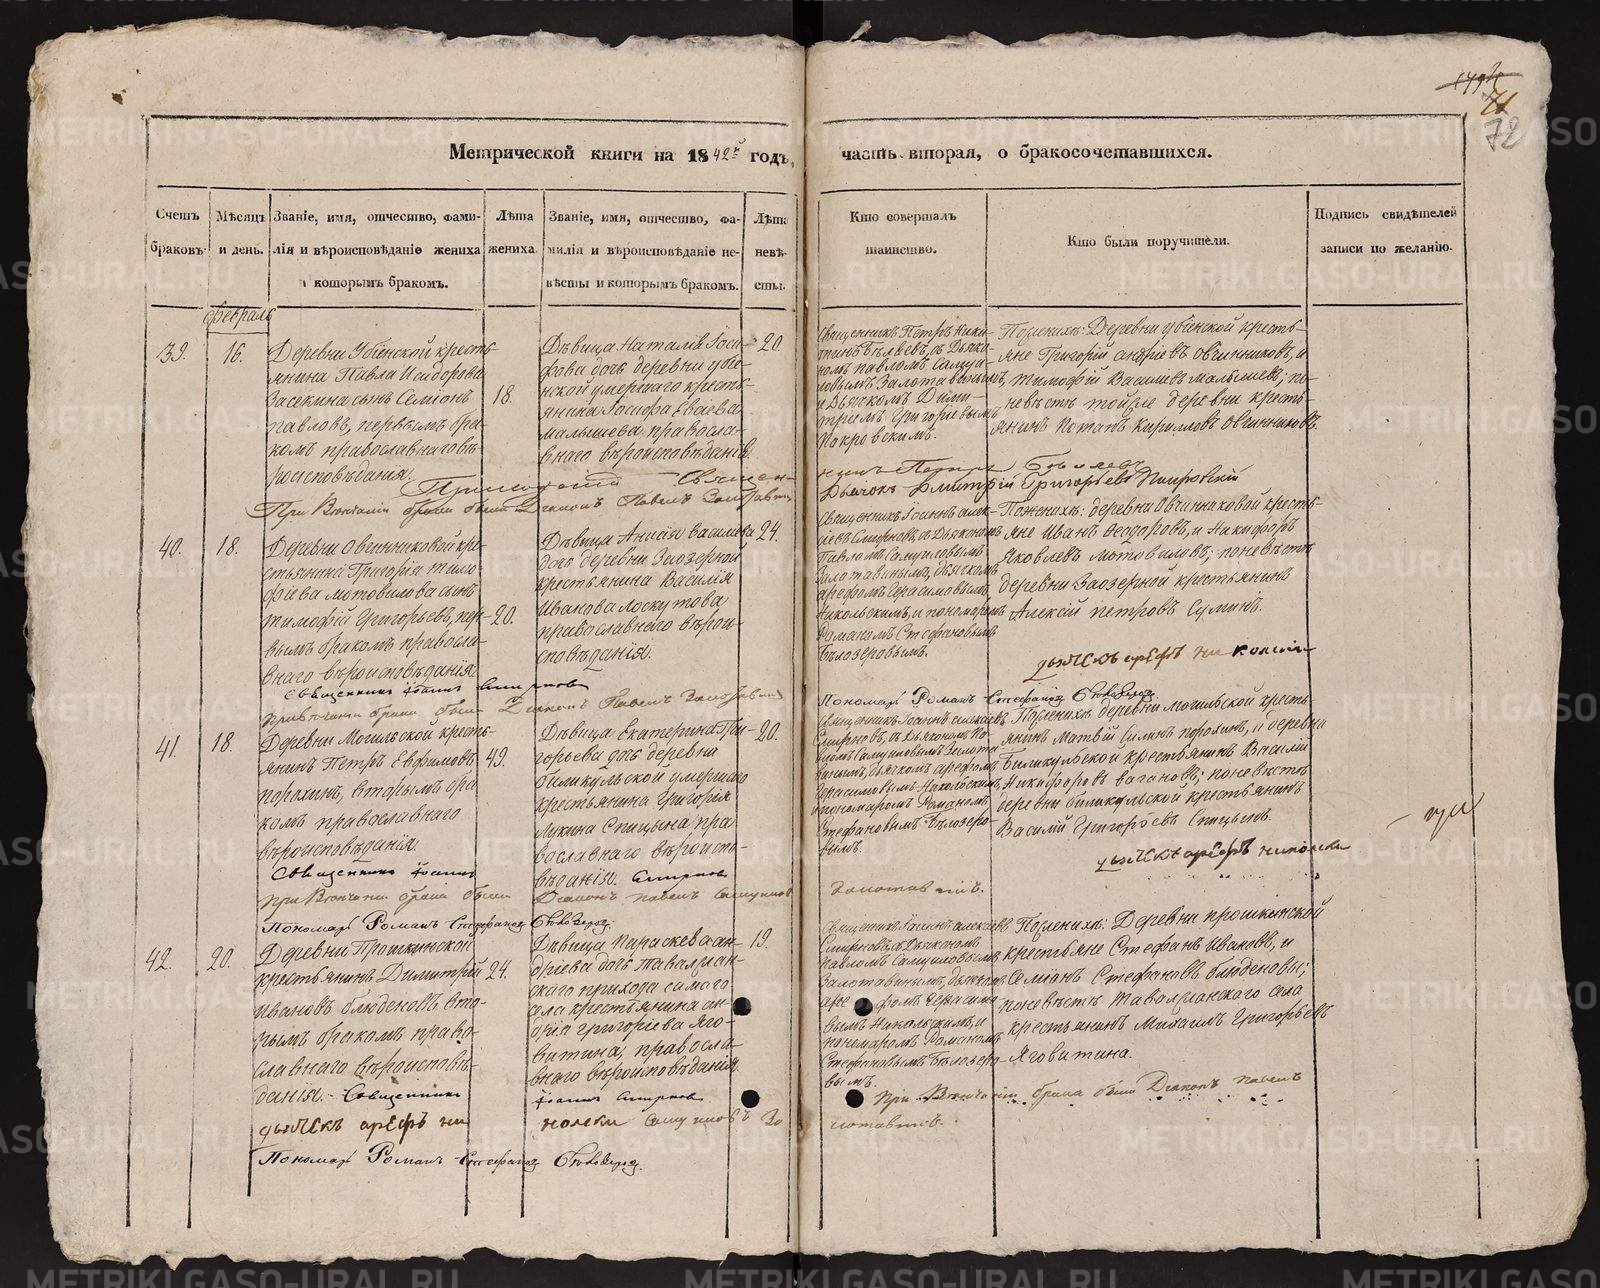 72
Метрической книги на 1842й годъ,
часть вторая, о бракосочетавшихся.
Счетъ браковъ.
Мѣсяцъ и день.
Званіе, имя, отчество, фами-
лія и вѣроисповѣданіе жениха
и которымъ бракомъ.
Лѣта жениха
Званіе, имя, отчество, фа-
милія и вѣроисповѣданіе не-
вѣсты и которымъ бракомъ.
Лѣта невѣ-
сты.
Кто совершалъ
таинство.
Кто были поручители.
Подпись свидѣтелей
записи по желанію.
Февраль
39.
16.
Деревни Убіенской кресть-
янина Павла Исидорова
Засекина сынъ Семіонъ
Павловъ, первымъ бра-
комъ православнаго вѣ-
роисповѣданія.
18.
Дѣвица Наталія Іоси-
фова дочь деревни Убіе-
нской умершаго кресть-
янина Іосифа
Малышева правосла-
внаго вѣроисповѣданія.
20.
Священникъ Петръ Ники-
тинъ Бѣляевъ, съ Дьяко-
номъ Павломъ Самуи-
ловымъ Золотавинымъ,
и Дьячкомъ Дими-
тріемъ Григорьевымъ
Покровскимъ.
По женихѣ: Деревни Убіенской кресть-
яне Григорій Андріевъ Овчинниковъ, и
Тимофій Васильевъ Малышевъ; по
невѣстѣ той же деревни кресть-
янинъ Потапъ Кирилловъ Овчинниковъ.
Священ-
никъ Петръ Бѣляевъ
При Вѣнчаніи брака былъ Діаконъ Павелъ Золотавинъ
Дьячокъ Дмитрій Григорьевъ Покровскій
40.
18.
Деревни Овчинниковой кре-
стьянина Григорія Тимо-
фіева Мотовилова сынъ
Тимофій Григорьевъ, пер-
вымъ бракомъ правосла-
внаго вѣроисповѣданія.
20.
Дѣвица Анисія Василіева
дочь деревни Заозерной
крестьянина Василія
Иванова Лоскутова
православнаго вѣрои-
сповѣданія.
24.
Священникъ Іоаннъ Алек-
сіевъ Смирновъ, съ Дьякономъ
Павломъ Самуиловымъ
Золотавинымъ, дьячкомъ
Арефомъ Герасимовымъ
Никольскимъ, и пономаромъ
Романомъ Стефановымъ
Бѣлозеровымъ.
По женихѣ: деревни Овчинниковой кресть-
яне Иванъ Феодоровъ, и Никифоръ
Яковлевъ Мотовиловъ; по невѣстѣ
деревни Заозерной крестьянинъ
Алексій Петровъ Суминъ.
Священникъ Іоаннъ Смирновъ
дьячекъ Арефъ Никольски
При вѣнчаніи брака былъ Діаконъ Павелъ Золотавинъ
Пономарь Романъ Стефановъ Бѣлозеров
41.
18.
Деревни Могильской кресть-
янинъ Петръ Евфимовъ
Порохинъ, вторымъ бра-
комъ православнаго
вѣроисповѣданія.
49.
Дѣвица Екатерина Гри-
горьева дочь деревни
Биликульской умершаго
крестьянина Григорія
Лукина Спицына пра-
вославнаго вѣроиспо-
вѣданія.
20.
Священникъ Іоаннъ Алексіевъ
Смирновъ, съ Дьякономъ Па-
вломъ Самуиловымъ Золота-
винымъ, дьячкомъ Арефомъ
Герасимовымъ Никольскимъ,
и пономаромъ Романомъ
Стефановымъ Бѣлозеро-
вымъ.
По женихѣ: деревни Могильской кресть-
янинъ Матвій Порохинъ, и деревни
Биликульской крестьянинъ Василій
Никифоровъ Вагановъ; по невѣстѣ
деревни Биликульской крестьянинъ
Василій Григорьевъ Спицынъ.
Священникъ Іоаннъ Смирновъ
дьячекъ Арефъ Никольски
При Вѣнчаніи брака былъ Діаконъ Павелъ Самуиловъ
Золотавинъ.
Пономарь Романъ Стефановъ Бѣлозеров
42.
20.
Деревни Прошкинской
крестьянинъ Димитрій
Ивановъ Блюденовъ вто-
рымъ бракомъ право-
славнаго вѣроисповѣ-
данія.
24.
Дѣвица Параскева Ан-
дріева дочь Таволжан-
скаго прихода самаго
села крестьянина Ан-
дрія Григоріева Яго-
витина, правосла-
внаго вѣроисповѣданія.
19.
Священникъ Іоаннъ Алексіевъ
Смирновъ, съ Дьякономъ
Павломъ Самуиловымъ
Золотавинымъ, дьячкомъ
Арефомъ Герасимо-
вымъ Никольскимъ, и
пономаромъ Романомъ
Стефановымъ Бѣлозеро-
вымъ.
По женихѣ: Деревни Прошкинской
крестьяне Стефанъ Ивановъ, и
Семіонъ Стефановъ Блюденовы;
по невѣстѣ Таволжанскаго села
крестьянинъ Михаилъ Григорьевъ
Яговитина.
Священникъ Іоаннъ Смирновъ
При Вѣнчаніи брака былъ Діаконъ Павелъ
Самуиловъ Золотавинъ.
дьячекъ Арефъ Никольски
Пономарь Романъ Стефановъ Бѣлозеров.
METRIKI.GASO-URAL.RU